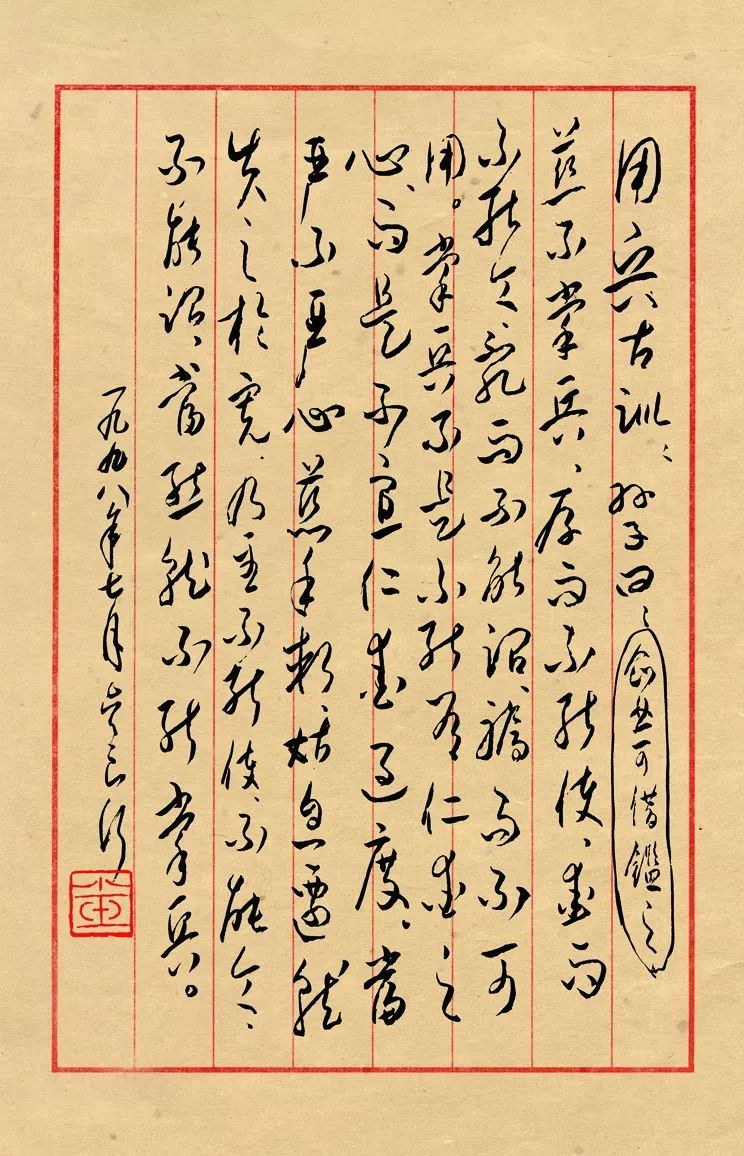 用兵古训：孙子曰：企业可借鉴之
慈不掌兵、厚而不能使、爱而
不能令、乱而不能治、骄而不可
用。掌兵不是不能有仁爱之
心、而是不宜仁爱过度、当
严不严心慈手软姑息迁就
失之於宽、乃至不能使、不能令、
不能治、当然就不能掌兵。
一九九八年七月